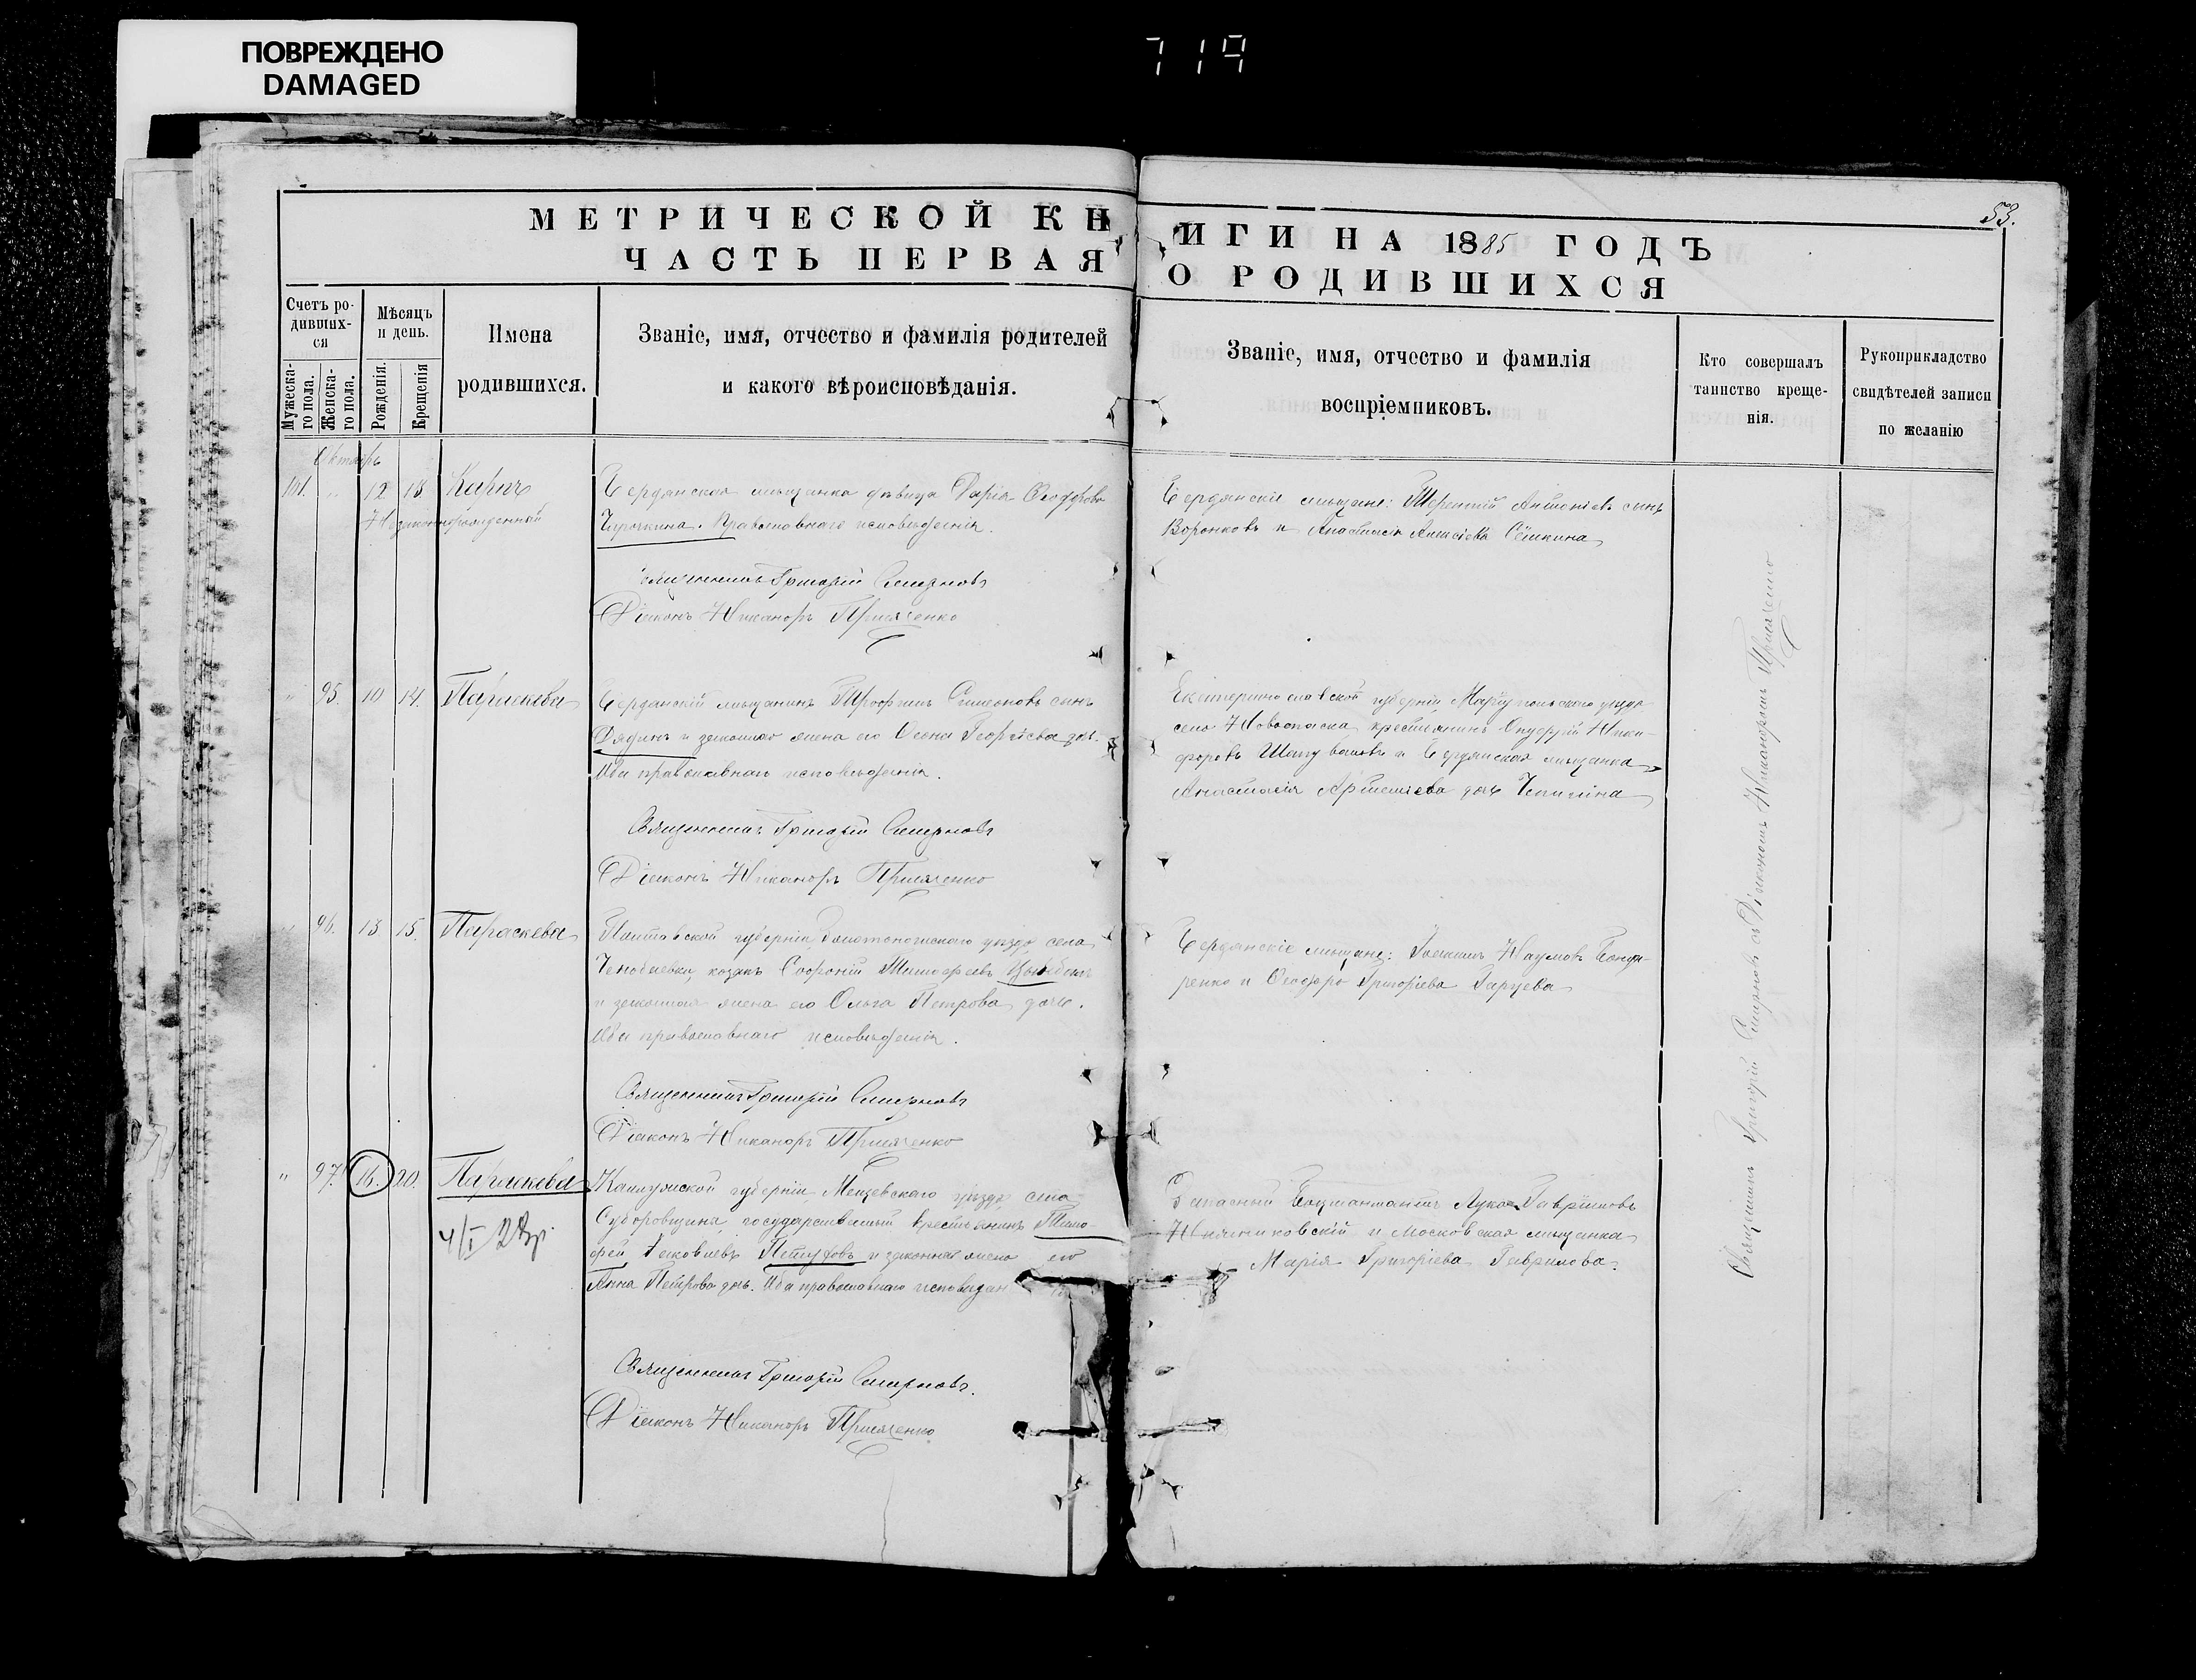 ПОВРЕЖДЕНО
DAMAGED
719
53.
МЕТРИЧЕСКОЙ КНИГИ НА 1885 ГОДЪ
ЧАСТЬ ПЕРВАЯ О РОДИВШИХСЯ
Счетъ ро-
дивших-
ся
Мужеска-
го пола.
Женска-
го пола.
Мѣсяцъ
и день.
Рожденія.
Крещенія
Имена
родившихся.
Званіе, имя, отчество и фамилія родителей
и какого вѣроисповѣданія.
Званіе, имя, отчество и фамилія
воспріемниковъ.
Кто совершалъ
таинство креще-
нія.
Рукоприкладство
свидѣтелей записи
по желанію
Октябрь
101. " 12 13 Карпъ
Незаконнорожденный
Бердянская мѣщанка дѣвица Дарія Ѳеодорова
православнаго исповѣданія.
Священникъ Григорій Смирновъ
Діаконъ Никаноръ Присяженко
Бердянскіе мѣщане: Терентій Антоніевъ сынъ
Воронковъ и Анастасія
" 95. 10 14. Параскева
Бердянскій мѣщанинъ Трофимъ Симеоновъ сынъ
Дядинъ и законная жена его Георгіева доч.
Оба православнаго исповѣданія.
Священникъ Григорій Смирновъ
Діаконъ Никаноръ Присяженко
Екатеринославской губерніи Маріупольскаго уѣзда
села Новоспаска крестьянинъ Онуфрій Ники-
форовъ и Бердянская мѣщанка
Анастасія Артеміева дочь
" 96. 13 15. Параскева
Полтавской губерніи Золотоношскаго уѣзда села
козакъ Софроній Тимофеевъ
и законная жена его Ольга Петрова дочь.
Оба православнаго исповѣданія.
Священникъ Григорій Смирновъ
Діаконъ Никаноръ Присяженко
Бердянскіе мѣщане: Наумовъ Бонда-
ренко и Ѳеодора Григоріева
" 97. 16. 20. Параскева
4/I 2
Калужской губерніи Мещевскаго уѣзда села
Суборовщина, государственный крестьянинъ Тимо-
фей Яковлевъ Петуховъ и законная жена его
Анна Петрова доч. Оба православнаго исповѣдан
Священникъ Григорій Смирновъ.
Діаконъ Никаноръ Присяженко
Запасный Лука Гавріиловъ
и Московская мѣщанка
Марія Григоріева Гаврилова.
Священникъ Григорій Смирновъ съ Діакономъ Никаноромъ Присяженко